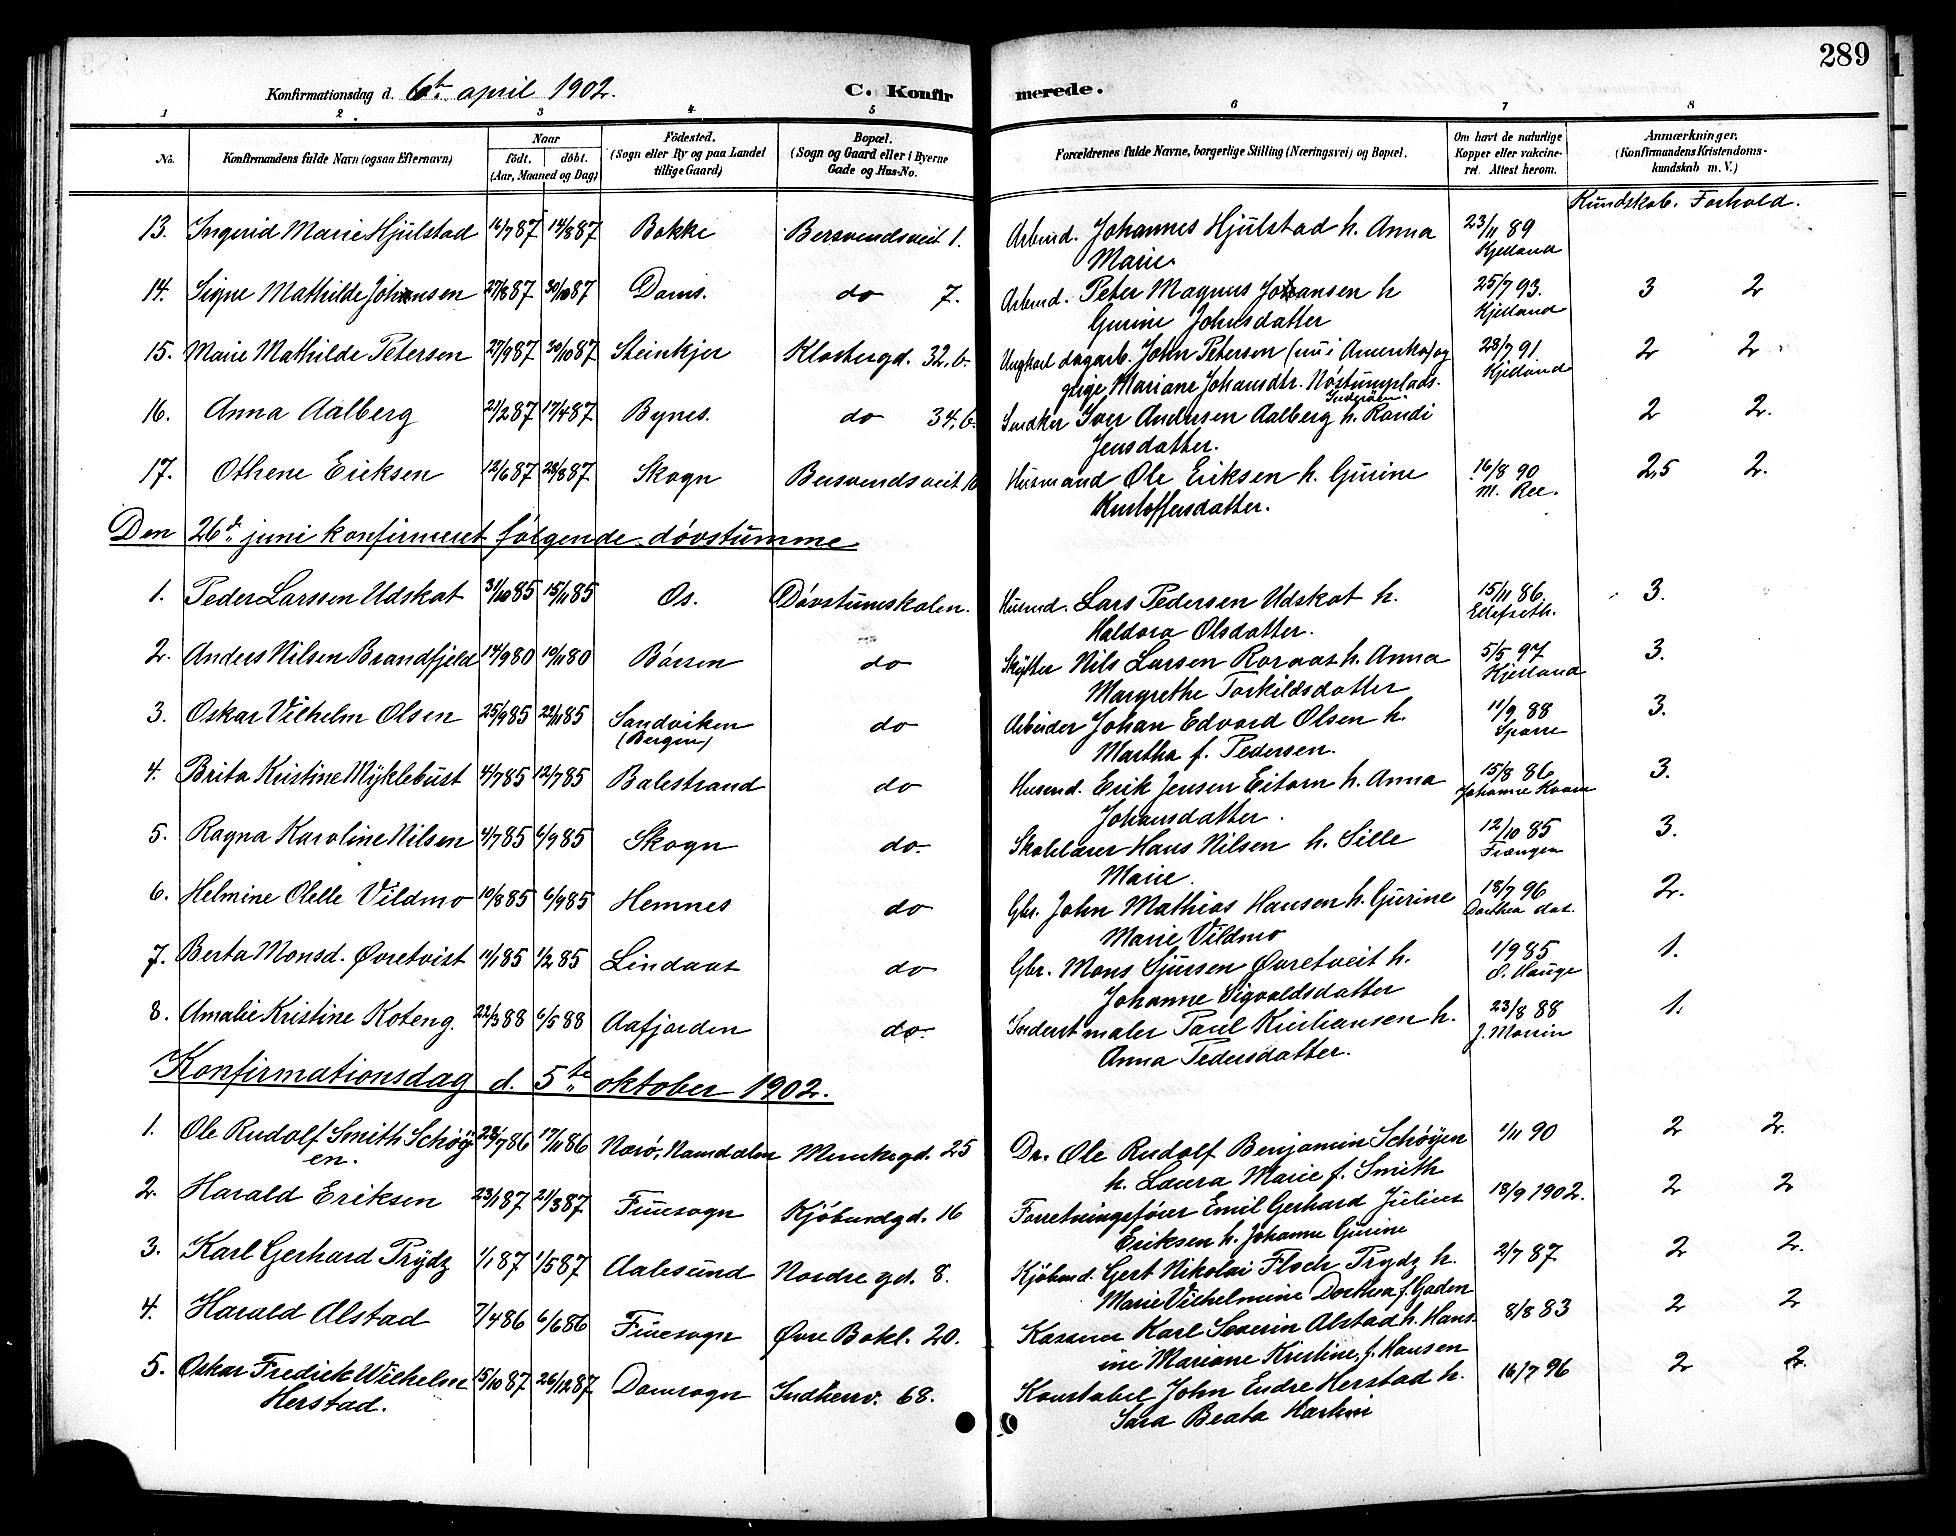 289
Konfirmationsdag d. 6te april 1902. C. Konfirmerede.
1 2 3 4 5 6 7 8
No. Konfirmandens fulde Navn (ogsaa Efternavn) Naar født, døbt. (Aar, Maaned og Dag) Fødested. (Sogn eller By og paa Landet tillige Gaard) Bopæl. (Sogn og Gaard eller i Byerne Gade og Hus-No. Forældrenes fulde Navne, borgerlige Stilling (Næringsvei) og Bopæl. Om havt de naturlige Kopper eller vakcineret. Attest herom. Anmærkninger. (Konfirmandens Kristendomskundskab m. V.)
Kundskab. Forhold.
13. Ingerid Marie Hjulstad 16/7 87 14/8 87 Bakke Bersvendsveit 1. Arbmd. Johannes Hjulstad h. Anna 23/11 89
Marie. Kjelland
14. Signe Mathilde Johansen 27/8 87 30/10 87 Doms. do 7. Arbmd. Peter Magnus Johansen h 25/7 93. 3 2
Gurine Johnsdatter Kjelland
15. Marie Mathilde Petersen 27/9 87 30/10 87 Steinkjer Klostergd. 32.b. Ungkarl dagarb. John Petersen (nu i Amerika) og 28/7 91. 2 2
pige Mariane Johansdtr. Nøstumplads. Kjelland
Inderøen.
16. Anna Aalberg 21/2 87 17/4 87 Bynes. do 34.b. Snedker Iver Andersen Aalberg h. Randi 2 2.
Jensdatter.
17. Othene Eriksen 12/6 87 28/8 87 Skogn Bersvendsveit 10 Husmand Ole Eriksen h. Gurine 16/8 90 2,5 2.
Kristoffersdatter. M. Ree.
Den 26d. juni konfirmeret følgende døvstumme
1. Peder Larssen Udskot 31/10 85 15/11 85 Os. Døvstumskolen. Husmd. Lars Pedersen Udskot h. 15/11 86. 3.
Haldora Olsdatter. Ellefseth.
2. Anders Nilsen Brandfjeld 14/9 80 10/11 80 Børsen do Skytter Nils Larsen Roraas h. Anna 5/5 97 3.
Margrethe Torkildsdatter Kjelland
3. Oskar Vilhelm Olsen 25/9 85 22/11 85 Sandviken do Arbeider Johan Edvard Olsen h. 11/9 88 3.
(Bergen) Martha f. Pedersen. Sparre
4. Brita Kristine Myklebust 4/7 85 12/7 85 Balestrand do Husmd. Erik Jensen Eitorn h. Anna 15/8 86 3.
Johansdatter. Johanne Kvam
5. Ragna Karoline Nilsen 4/7 85 6/9 85 Skogn do. Skolelærer Hans Nilsen h. Sille 12/10 85 3.
Marie. Frængen
6. Helmine Olelle Vildmo 10/8 85 6/9 85 Hemnes do Gbr. John Mathias Hansen h. Gurine 18/7 96 2.
Marie Vildmo Dorthea dat.
7. Berta Monsd. Øvretvist 11/1 85 1/2 85 Lindaas do Gbr. Mons Sjursen Øvretveit h. 1/9 85 1.
Johanne Sigvaldsdatter O. Hauge
8. Amalie Kristine Koteng. 22/3 88 6/5 88 Aafjorden do. Inderst maler Paul Kristiansen h. 23/8 88 1.
Anna Pedersdatter. J. Morrin
Konfirmationsdag d. 5te oktober 1902.
1. Ole Rudolf Smith Schøy- 28/7 86 17/11 86 Nærø, Namdalen Munkegd. 25 Dr. Ole Rudolf Benjamin Schøyen 1/11 90 2 2.
en. h. Laura Marie f. Smith
2. Harald Eriksen 23/1 87 21/3 87 Fruesogn Kjøbmdgd. 16 Forretningsfører Emil Gerhard Julius 18/9 1902. 2 2
Eriksen h. Johanne Gurine
3. Karl Gerhard Prydz 1/1 87 1/5 87 Aalesund Nordre gd. 8. Kjøbmd. Gert Nikolai Floch Prydz h. 2/7 87 2 2.
Marie Vilhelmine Dorthea f. Gaden
4. Harald Alstad 7/4 86 6/6 86 Fruesogn Øvre Bakl. 20. Kasserer Karl Severin Alstad h. Hans- 8/8 83 2 2
ine Mariane Kristine, f. Hansen
5. Oskar Fredrick Wilhelm 15/10 87 26/12 87 Domsogn Indherrv. 68. Konstabel John Endre Herstad h. 16/7 96 2 2.
Herstad. Sara Beata